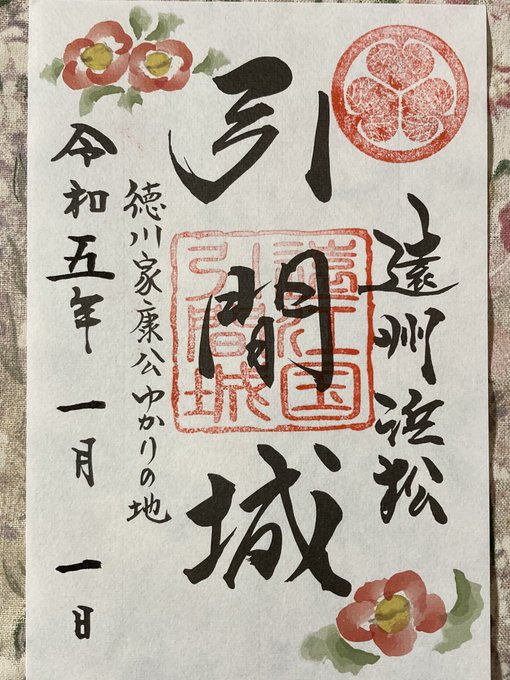 遠州浜松
引間城
遠江国
引間城
徳川家康公ゆかりの地
令和五年 一月 一日